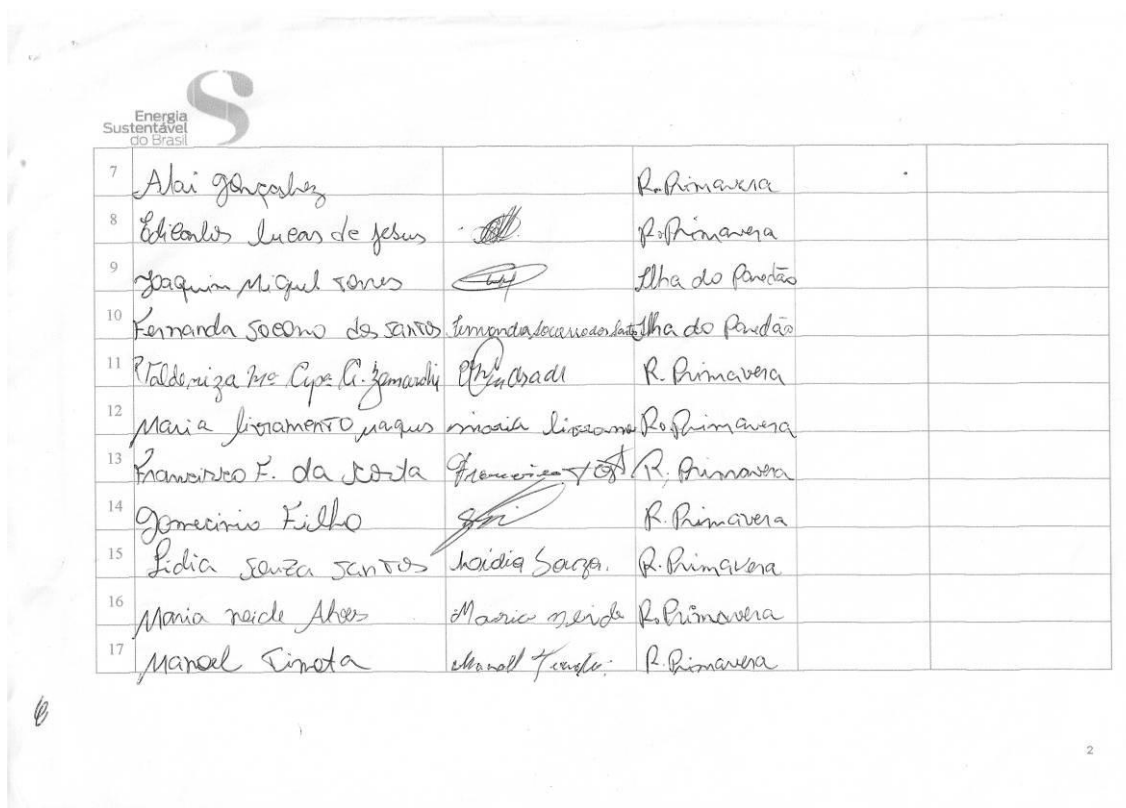 Energia
Sustentável
do Brasil
7 Alai Gonçalvez R. Primavera
8 Edicarlos Lucas de Jesus R. Primavera
9 Joaquim Miguel Torres Ilha do Paredão
10 Fernanda Socorro dos Santos Fernanda Socorro dos Santos Ilha do Paredão
11 Valdeniza Mª R. Primavera
12 Maria livramento maria livrame R. Primavera
13 Francisco F. da Costa Francisco R. Primavera
14 Gomecinio Filho R. Primavera
15 Lidia Souza Santos Loidia Souza. R. Primavera
16 Maria neide Alves Maria neide R. Primavera
17 Manoel Timota Manoel R. Primavera
2